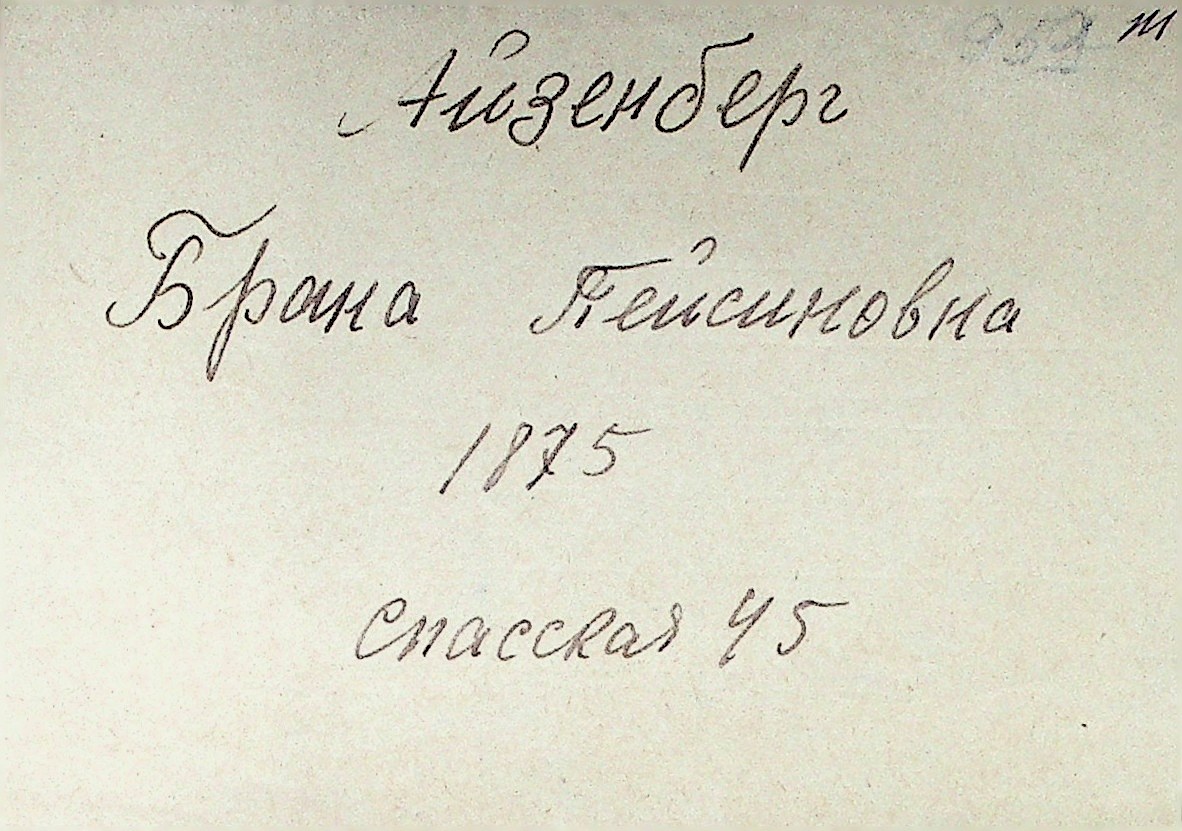 Айзенберг
Брана Пейсиновна
1875
Спасская 45